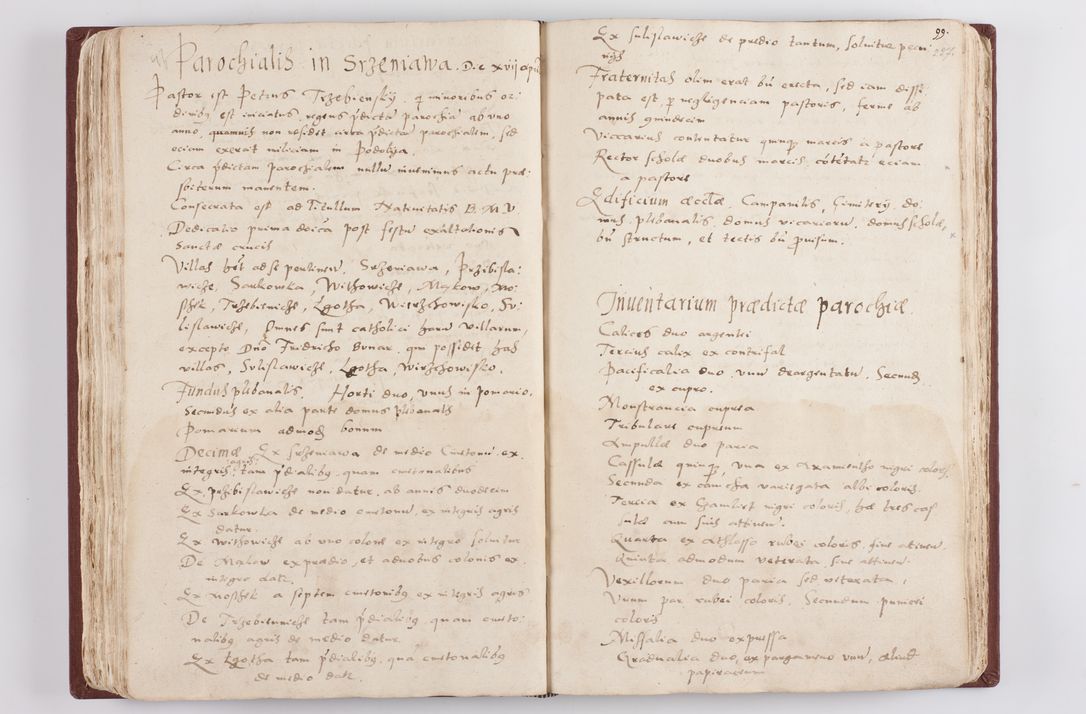 Parochialis in Srzeniawa. D. c xvij
Pastor est Petrus Trzebiensky, q minoribus or:
dinibq est iniciatus, regens pdicta parochia ab uno
anno, quamuis non residet circa pdicta parochialem, sed
eciam exercet miliciam in Podolya.
Circa pdictam Parochialem nullu inuenimus actu præ:
sbiterum manentem.
Consecrata est ad Titullum Natiuitatis B. M. V.
Dedicatio prima doica post festu exaltationis
Sanctæ crucis
Villas hēt ad se pertinen. Srzeniawa, Przibisla:
wicze, Sarkowka, Withowicze, Makow, No:
szek, Trzebienicze, Lgotha, Wierzchowisko, Su:
lislawicze, Omnes sunt catholici harū villarum,
excepto Dno Fridricho Bonar, qui possidet has
villas, Sulislawicze, Lgotha, Wirzchowisko.
Fundus plibanalis. Horti duo, unus in pomario,
Secundus ex alia parte domus plibanalis
Pomarium admodū bonum
Decimæ Ex Srzeniawa de medio Cmetonū ex
integris agris tam pdialibq, quam cmetonalibus
Ex Przibislawicze non datur, ab annis duodecim
Ex Sarkowka de medio cmetonū, ex integris agris
datur.
Ex Withowicze ab uno colone ex integro soluitur
De Makow ex prædio, et aduotus colonis ex
integro datr.
Ex Noszek a septem cmetonibq ex integris agris
De Trzebiennicze tam pdialibq quam cmeto:
nalibq agris de medio datur.
Ex Lgotha tam pdialibq, quā cmetonalibq
de medio datr.
99.
227
Ex sulislawicze de predio tantum, soluitur pecu:
nijs
Fraternitas olim erat bn erecta, sed iam dissi:
pata est, p negligenciam pastoris, ferme ab
annis quindecim
Viccarius contentatur quinq marcis a pastore
Rector scholæ duobus marcis, cōtētatr eciam
a pastore
Edificium æcclæ, Campanilis, Cimiterij, do:
mus plibanalis, domus vicariorū, domus scholæ,
bn structum, et tectis bn puisum.
Inuentarium prædictæ parochiæ.
Calices duo argentei
Tercius calix ex contrifal
Pacificalia duo, unū deargentatū, Secund
ex cupro.
Monstrancia cuprea
Tribulare cupreum
Ampullæ duo paria
Cassulæ quinq, una ex Axamentho nigri coloris,
Secunda ex camcha variegata albi coloris.
Tercia ex Czamlet nigri coloris, hæ tres cas:
sulæ cum suis attinen.
Quarta ex Athlasso rubei coloris, sine attinen.
Quinta admodum veterata, sine attinen.
Vexillorum duo paria sed veterata,
Unum par rubei coloris, Secundum punicei
coloris
Missalia duo expressa
Gradualia duo, ex pargameno unū, aliud
papiraceum